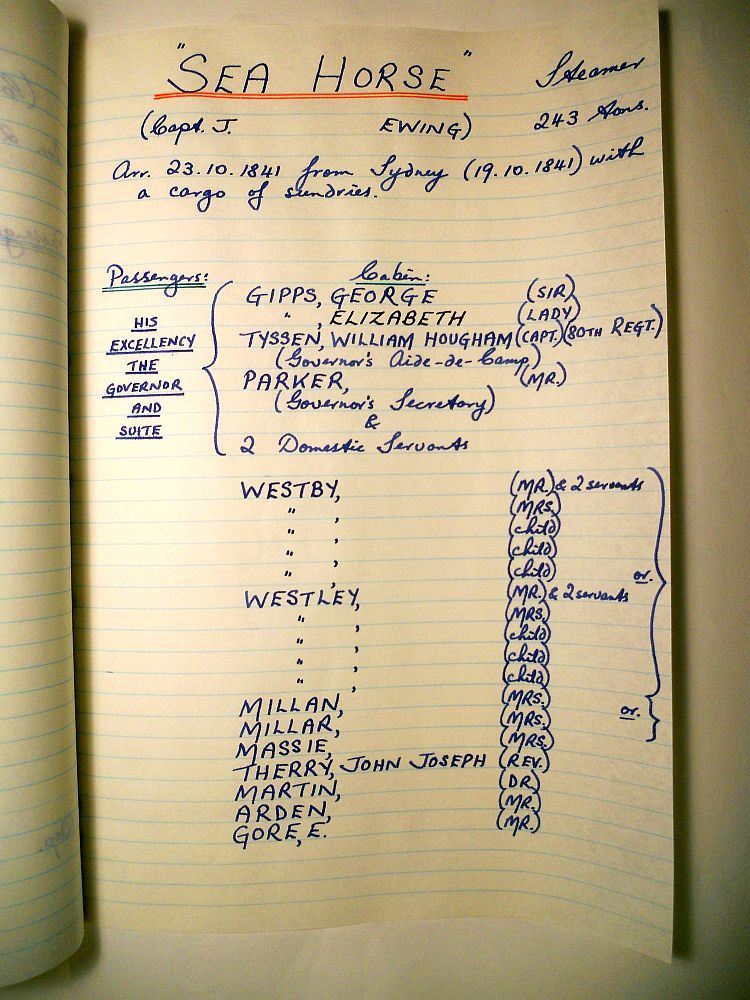 "SEA HORSE" Steamer
(Capt. J. EWING) 243 tons.
Arr. 23.10.1841 from Sydney (19.10.1841) with
a cargo of sundries.
Passengers: Cabin:
HIS EXCELLENCY THE GOVERNOR AND SUITE
GIPPS, GEORGE (SIR)
" , ELIZABETH (LADY)
TYSSEN, WILLIAM HOUGHAM (CAPT.) (80TH REGT.)
(Governor's Aide-de-Camp)
PARKER, (MR.)
(Governor's Secretary)
&
2 Domestic Servants
WESTBY, (MR.) & 2 servants
" , (MRS.)
" , (child)
" , (child)
" , (child)
or.
WESTLEY, (MR.) & 2 servants
" , (MRS.)
" , (child)
" , (child)
" , (child)
MILLAN, (MRS.)
or.
MILLAR, (MRS.)
MASSIE, (MRS.)
THERRY, JOHN JOSEPH (REV.)
MARTIN, (DR.)
ARDEN, (MR.)
GORE, E. (MR.)
Dep.